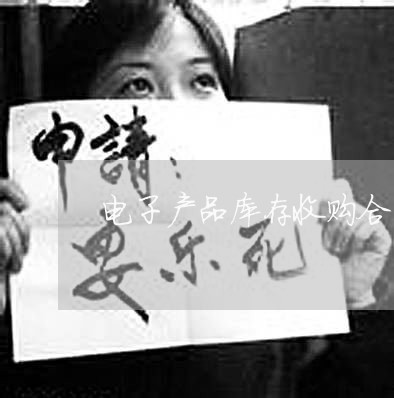 申請：
电子产品库存收购合
安乐死